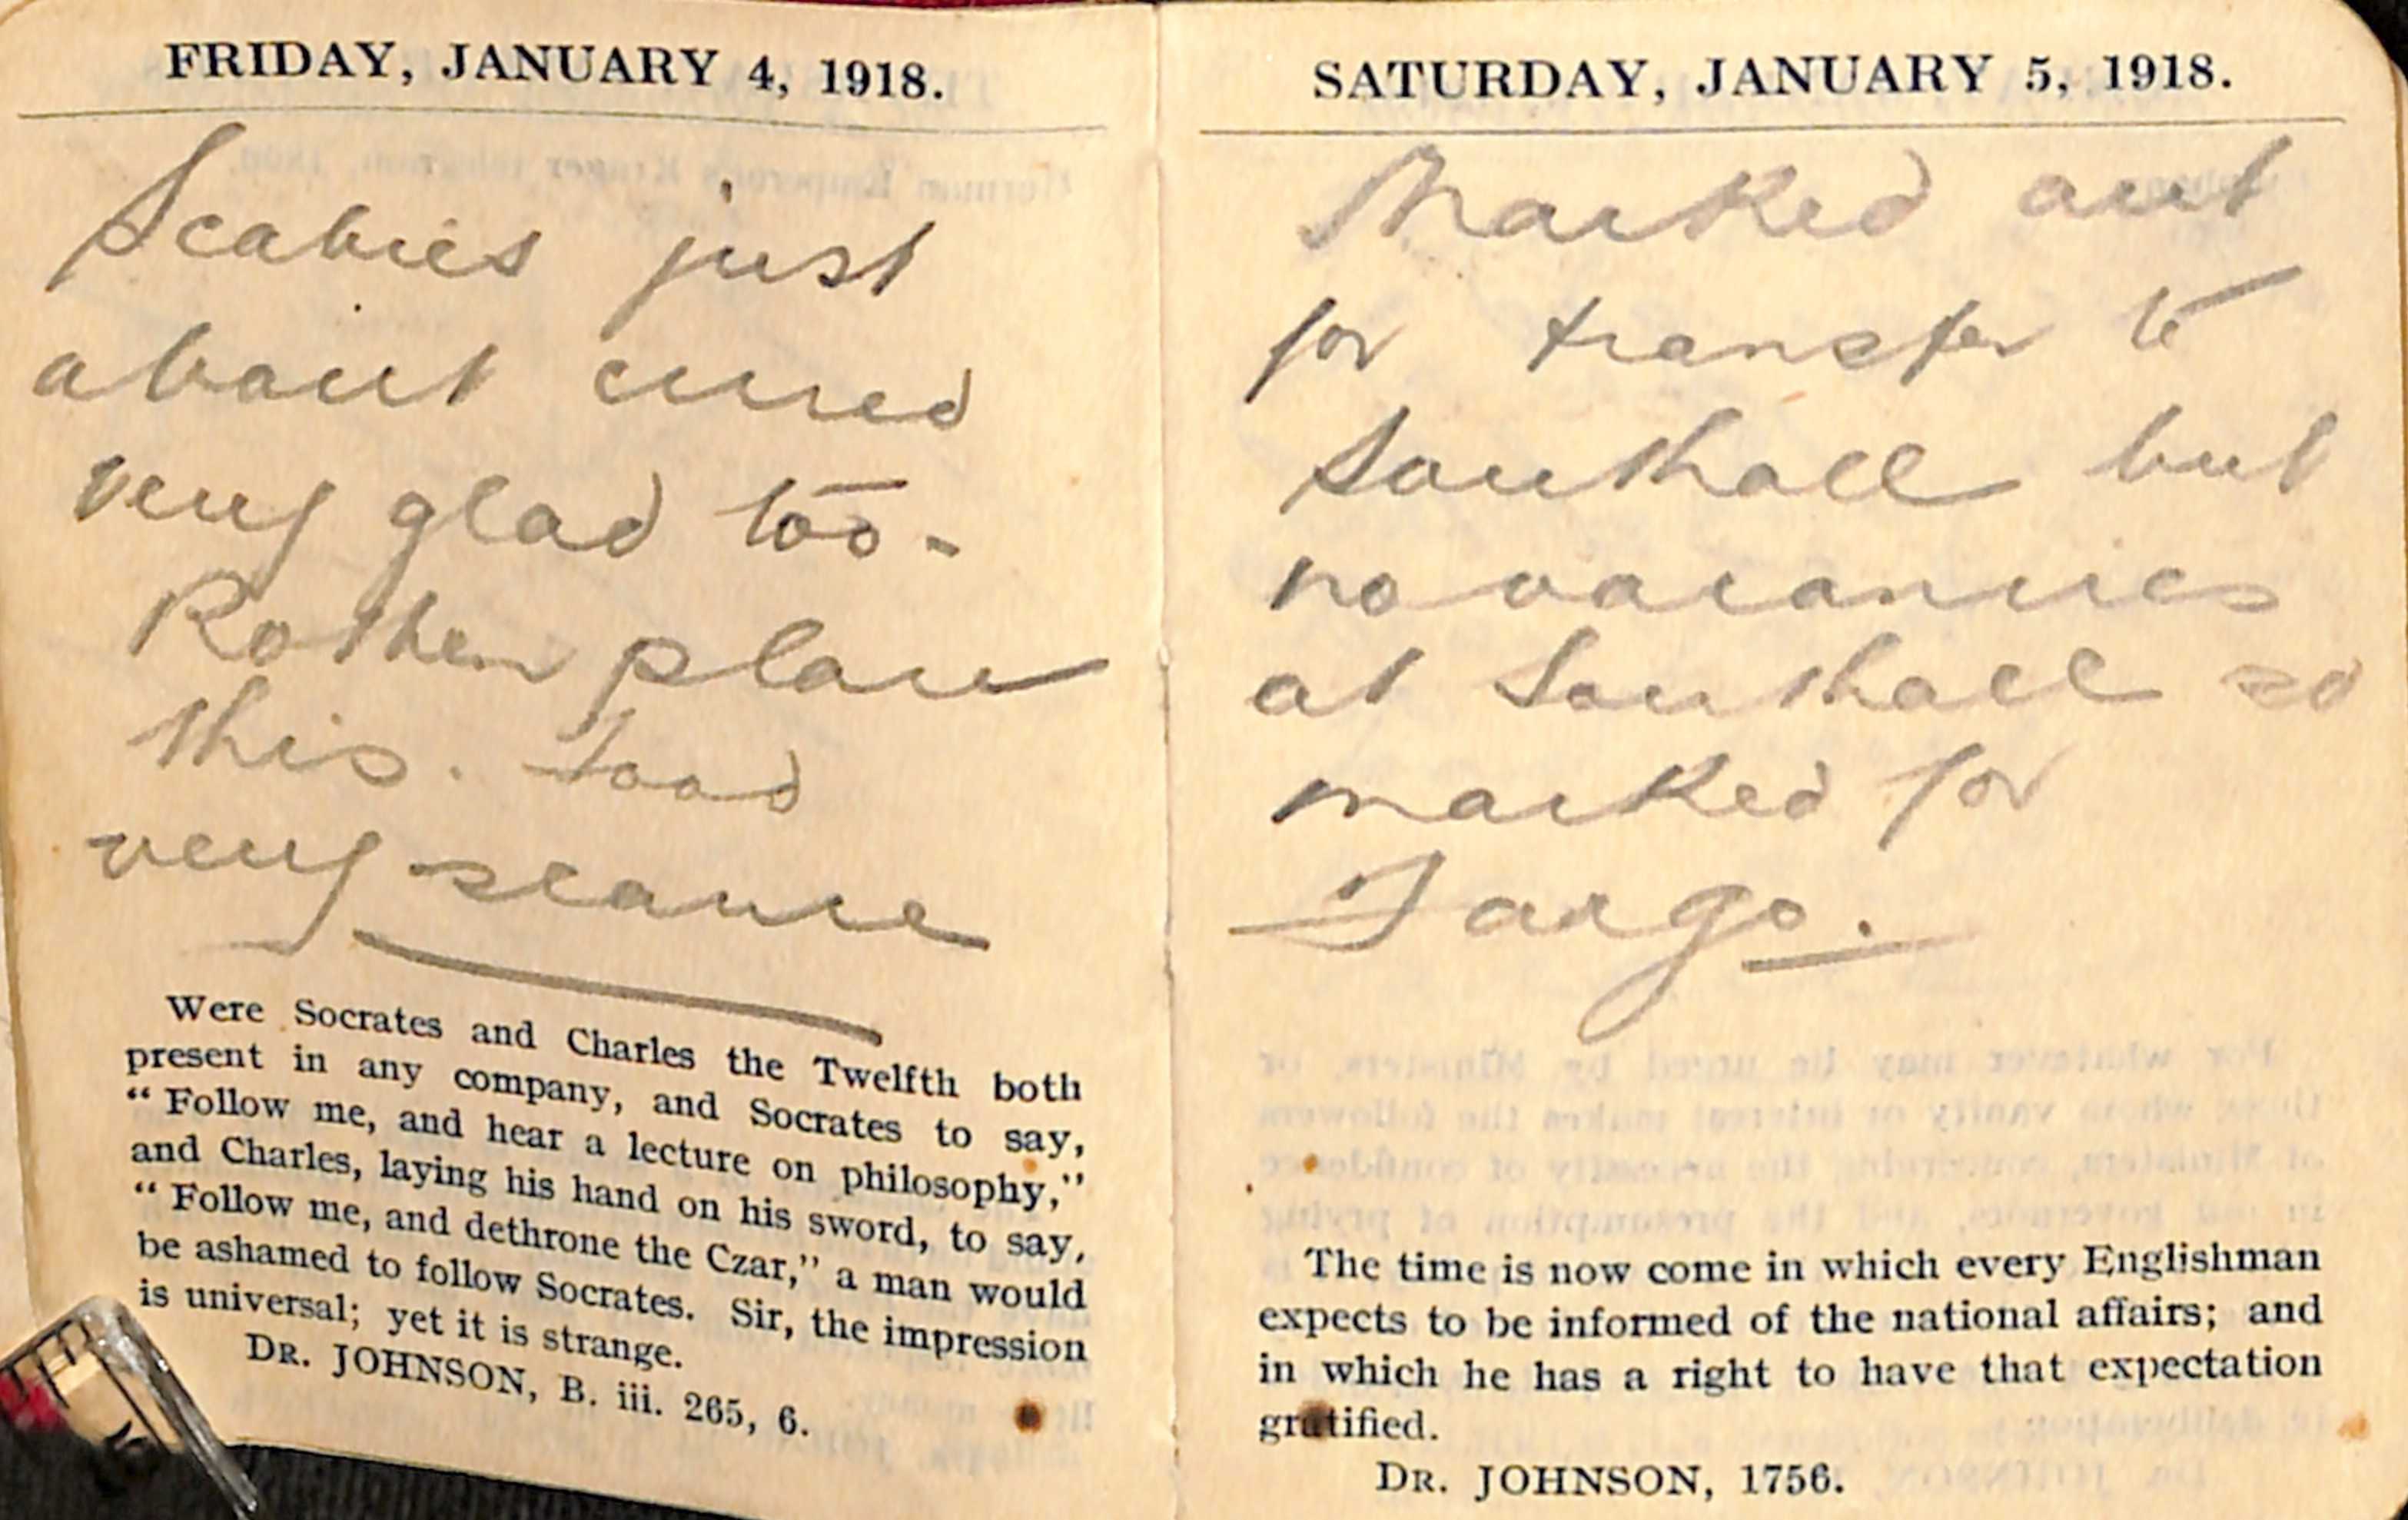 FRIDAY, JANUARY 4, 1918.
Scabies just
about cured
very glad too-
Rotten place
this. Food
very scarce
Were Socrates and Charles the Twelfth both
present in any company, and Socrates to say,
“ Follow me, and hear a lecture on philosophy,”
and Charles, laying his hand on his sword, to say,
“ Follow me, and dethrone the Czar,” a man would
be ashamed to follow Socrates. Sir, the impression
is universal; yet it is strange.
DR. JOHNSON, B. iii. 265, 6.
SATURDAY, JANUARY 5, 1918.
Marked out
for transfer to
Southall but
no vacancies
at Southall so
marked for
The time is now come in which every Englishman
expects to be informed of the national affairs; and
in which he has a right to have that expectation
gratified.
DR. JOHNSON, 1756.